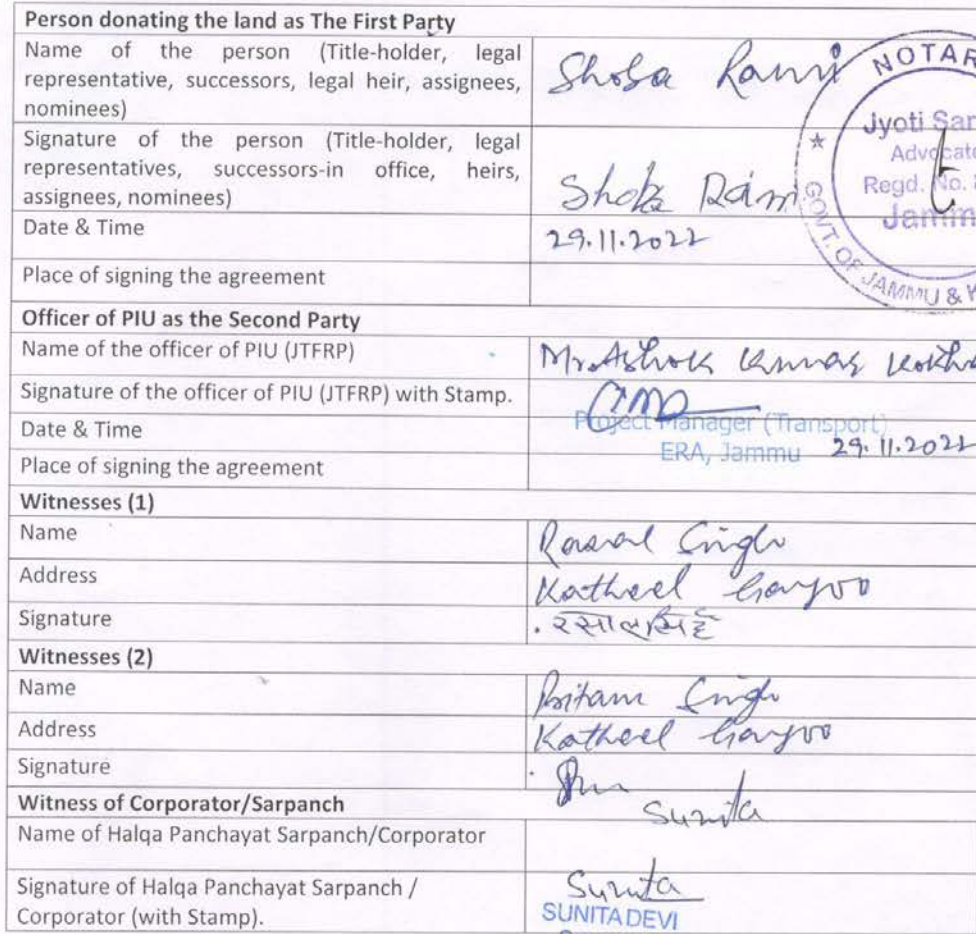 Person donating the land as The First Party
Name of the person (Title-holder, legal
representative, successors, legal heir, assignees,
nominees)
Shoba Rani
Signature of the person (Title-holder, legal
representatives, successors-in office, heirs,
assignees, nominees)
Shoba Rani
Date & Time
29.11.2022
Place of signing the agreement
NOTAR
Jyoti Sar
Advocate
Regd. No.
Jamm
GOVT. OF JAMMU & K
Officer of PIU as the Second Party
Name of the officer of PIU (JTFRP)
Mr. Ashok Kumar
Signature of the officer of PIU (JTFRP) with Stamp.
Project Manager (Transport)
ERA, Jammu
Date & Time
29.11.2022
Place of signing the agreement
Witnesses (1)
Name
Rasal Singh
Address
Katheel
Signature
रसाल सिंह
Witnesses (2)
Name
Pritam Singh
Address
Katheel
Signature
Witness of Corporator/Sarpanch
Name of Halqa Panchayat Sarpanch/Corporator
Sunita
Signature of Halqa Panchayat Sarpanch /
Corporator (with Stamp).
Sunita
SUNITA DEVI